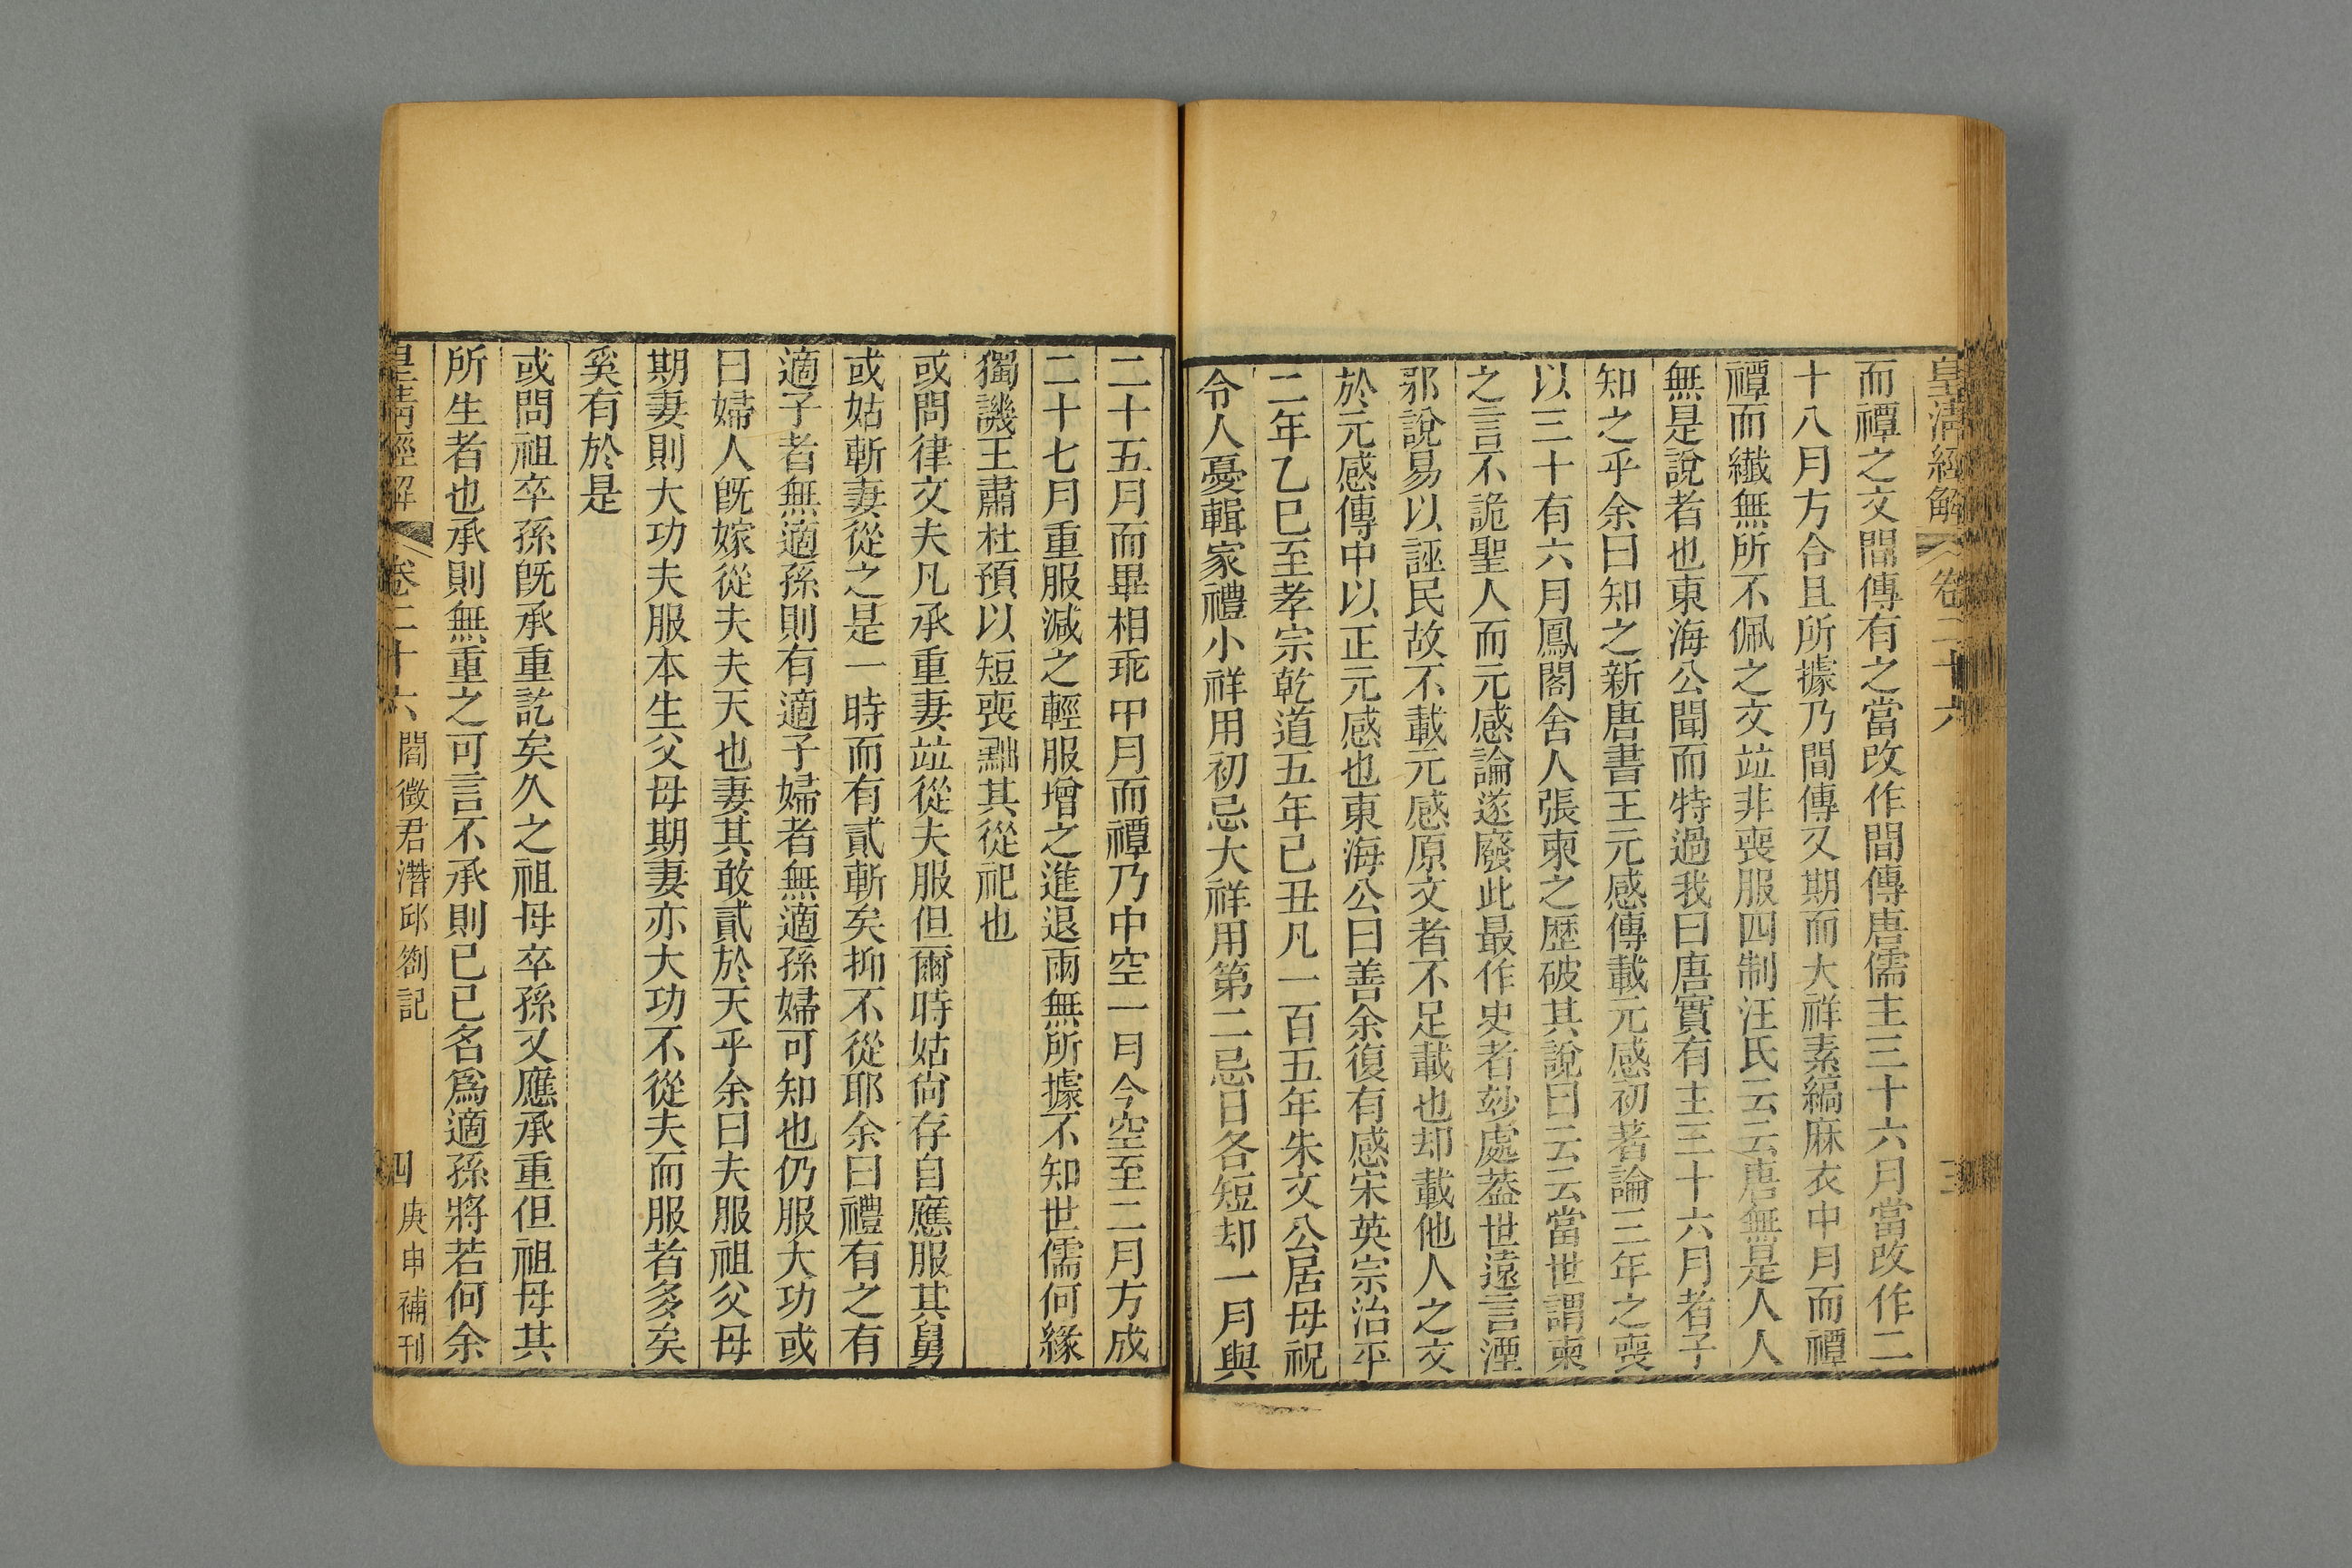 皇清經解 卷二十六 三
而禫之文間傳有之當改作間傳唐儒主三十六月當改作二
十八月方合且所據乃間傳又期而大祥素縞麻衣中月而禫
禫而纎無所不佩之文竝非喪服四制汪氏云云唐無是人人
無是說者也東海公聞而特過我曰唐實有主三十六月者子
知之乎余曰知之新唐書王元感傳載元感初著論三年之喪
以三十有六月鳳閣舍人張柬之歴破其說曰云云當世謂柬
之言不詭聖人而元感論遂廢此最作史者玅處葢世遠言湮
邪說易以誣民故不載元感原文者不足載也却載他人之文
於元感傳中以正元感也東海公曰善余復有感宋英宗治平
二年乙巳至孝宗乾道五年己丑凡一百五年朱文公居母祝
令人憂輯家禮小祥用初忌大祥用第二忌日各短却一月與
二十五月而畢相乖甲月而禫乃中空一月今空至二月方成
二十七月重服減之輕服增之進退兩無所據不知世儒何緣
獨譏王肅杜預以短喪黜其從祀也
或問律文夫凡承重妻竝從夫服但爾時姑尙存自應服其舅
或姑斬妻從之是一時而有貳斬矣抑不從耶余曰禮有之有
適子者無適孫則有適子婦者無適孫婦可知也仍服大功或
曰婦人旣嫁從夫夫天也妻其敢貳於天乎余曰夫服祖父母
期妻則大功夫服本生父母期妻亦大功不從夫而服者多矣
奚有於是
或問祖卒孫旣承重訖矣久之祖母卒孫又應承重但祖母其
所生者也承則無重之可言不承則已已名爲適孫將若何余
皇清經解 卷二十六 閻徵君潛邱劄記 四 庚申補刊